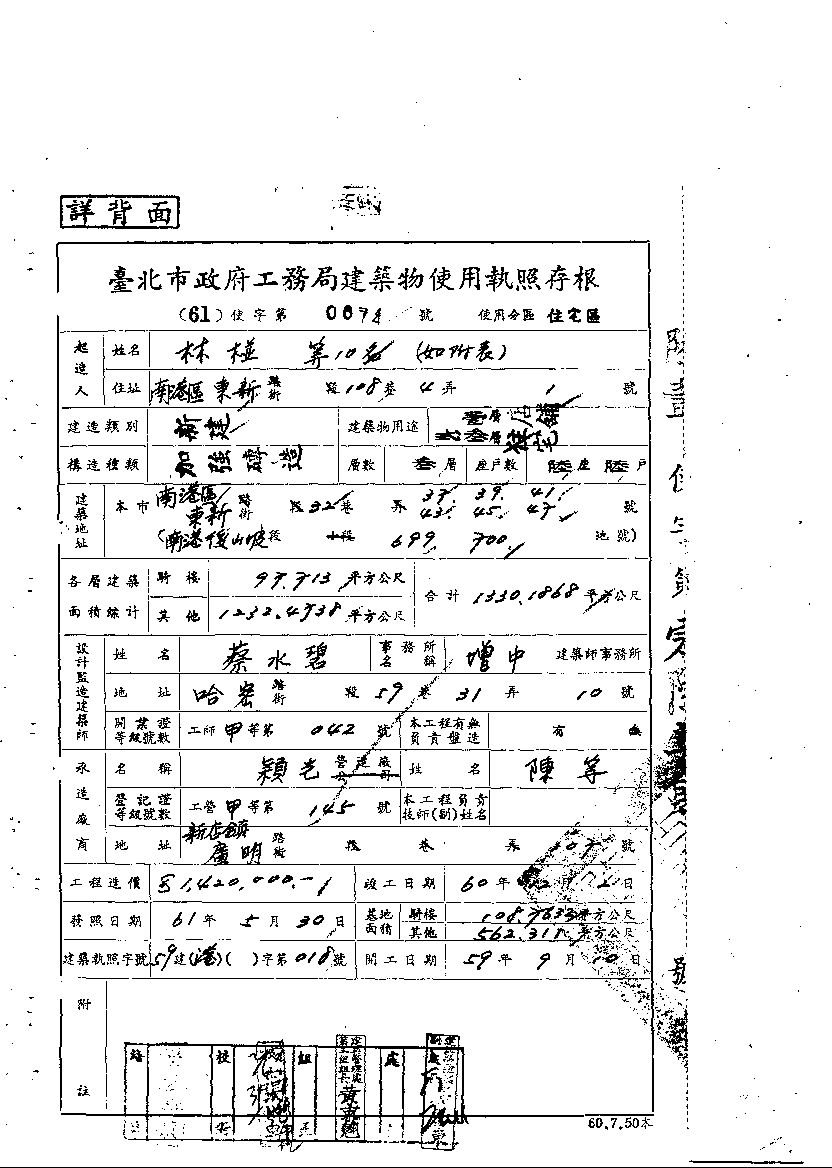 詳背面
臺北市政府工務局建築物使用執照存根
(61)使字第 0674 號 使用分區 住宅區
起造人 姓名 林椪 等10名 (如附表)
住址 南港區東新路街 段108巷4弄1號
建造類別 新建 建築物用途 壹層店舖 貳參層住宅
構造種類 加強磚造 層數 叁層 座戶數 陸座陸戶
建築地址 本市南港區東新路街 段32巷 弄 37. 39. 41. 43. 45. 47. 號
(南港後山坡段 小段 699 700 地號)
各層建築面積綜計 騎樓 97.713平方公尺 合計 1330.1868平方公尺
其他 1232.4738平方公尺
設計監造建築師 姓名 蔡水碧 事務所名稱 增中 建築師事務所
地址 哈密路街 段59巷31弄10號
開業證等級號數 工師甲等第042號 本工程有無負責監造 有 無
承造廠商 名稱 穎光 營造廠公司 姓名 陳等
登記證等級號數 工營甲等第145號 本工程負責技師(副)姓名
地址 新店鎮廣明路街 段 巷 弄 107號
工程造價 1,420,000.- 竣工日期 60年12月21日
發照日期 61年5月30日 基地面積 騎樓 108.7633平方公尺
其他 562.318平方公尺
建築執照字號 59建(港)( )字第018號 開工日期 59年9月10日
附註
校 組 處
60.7.50本